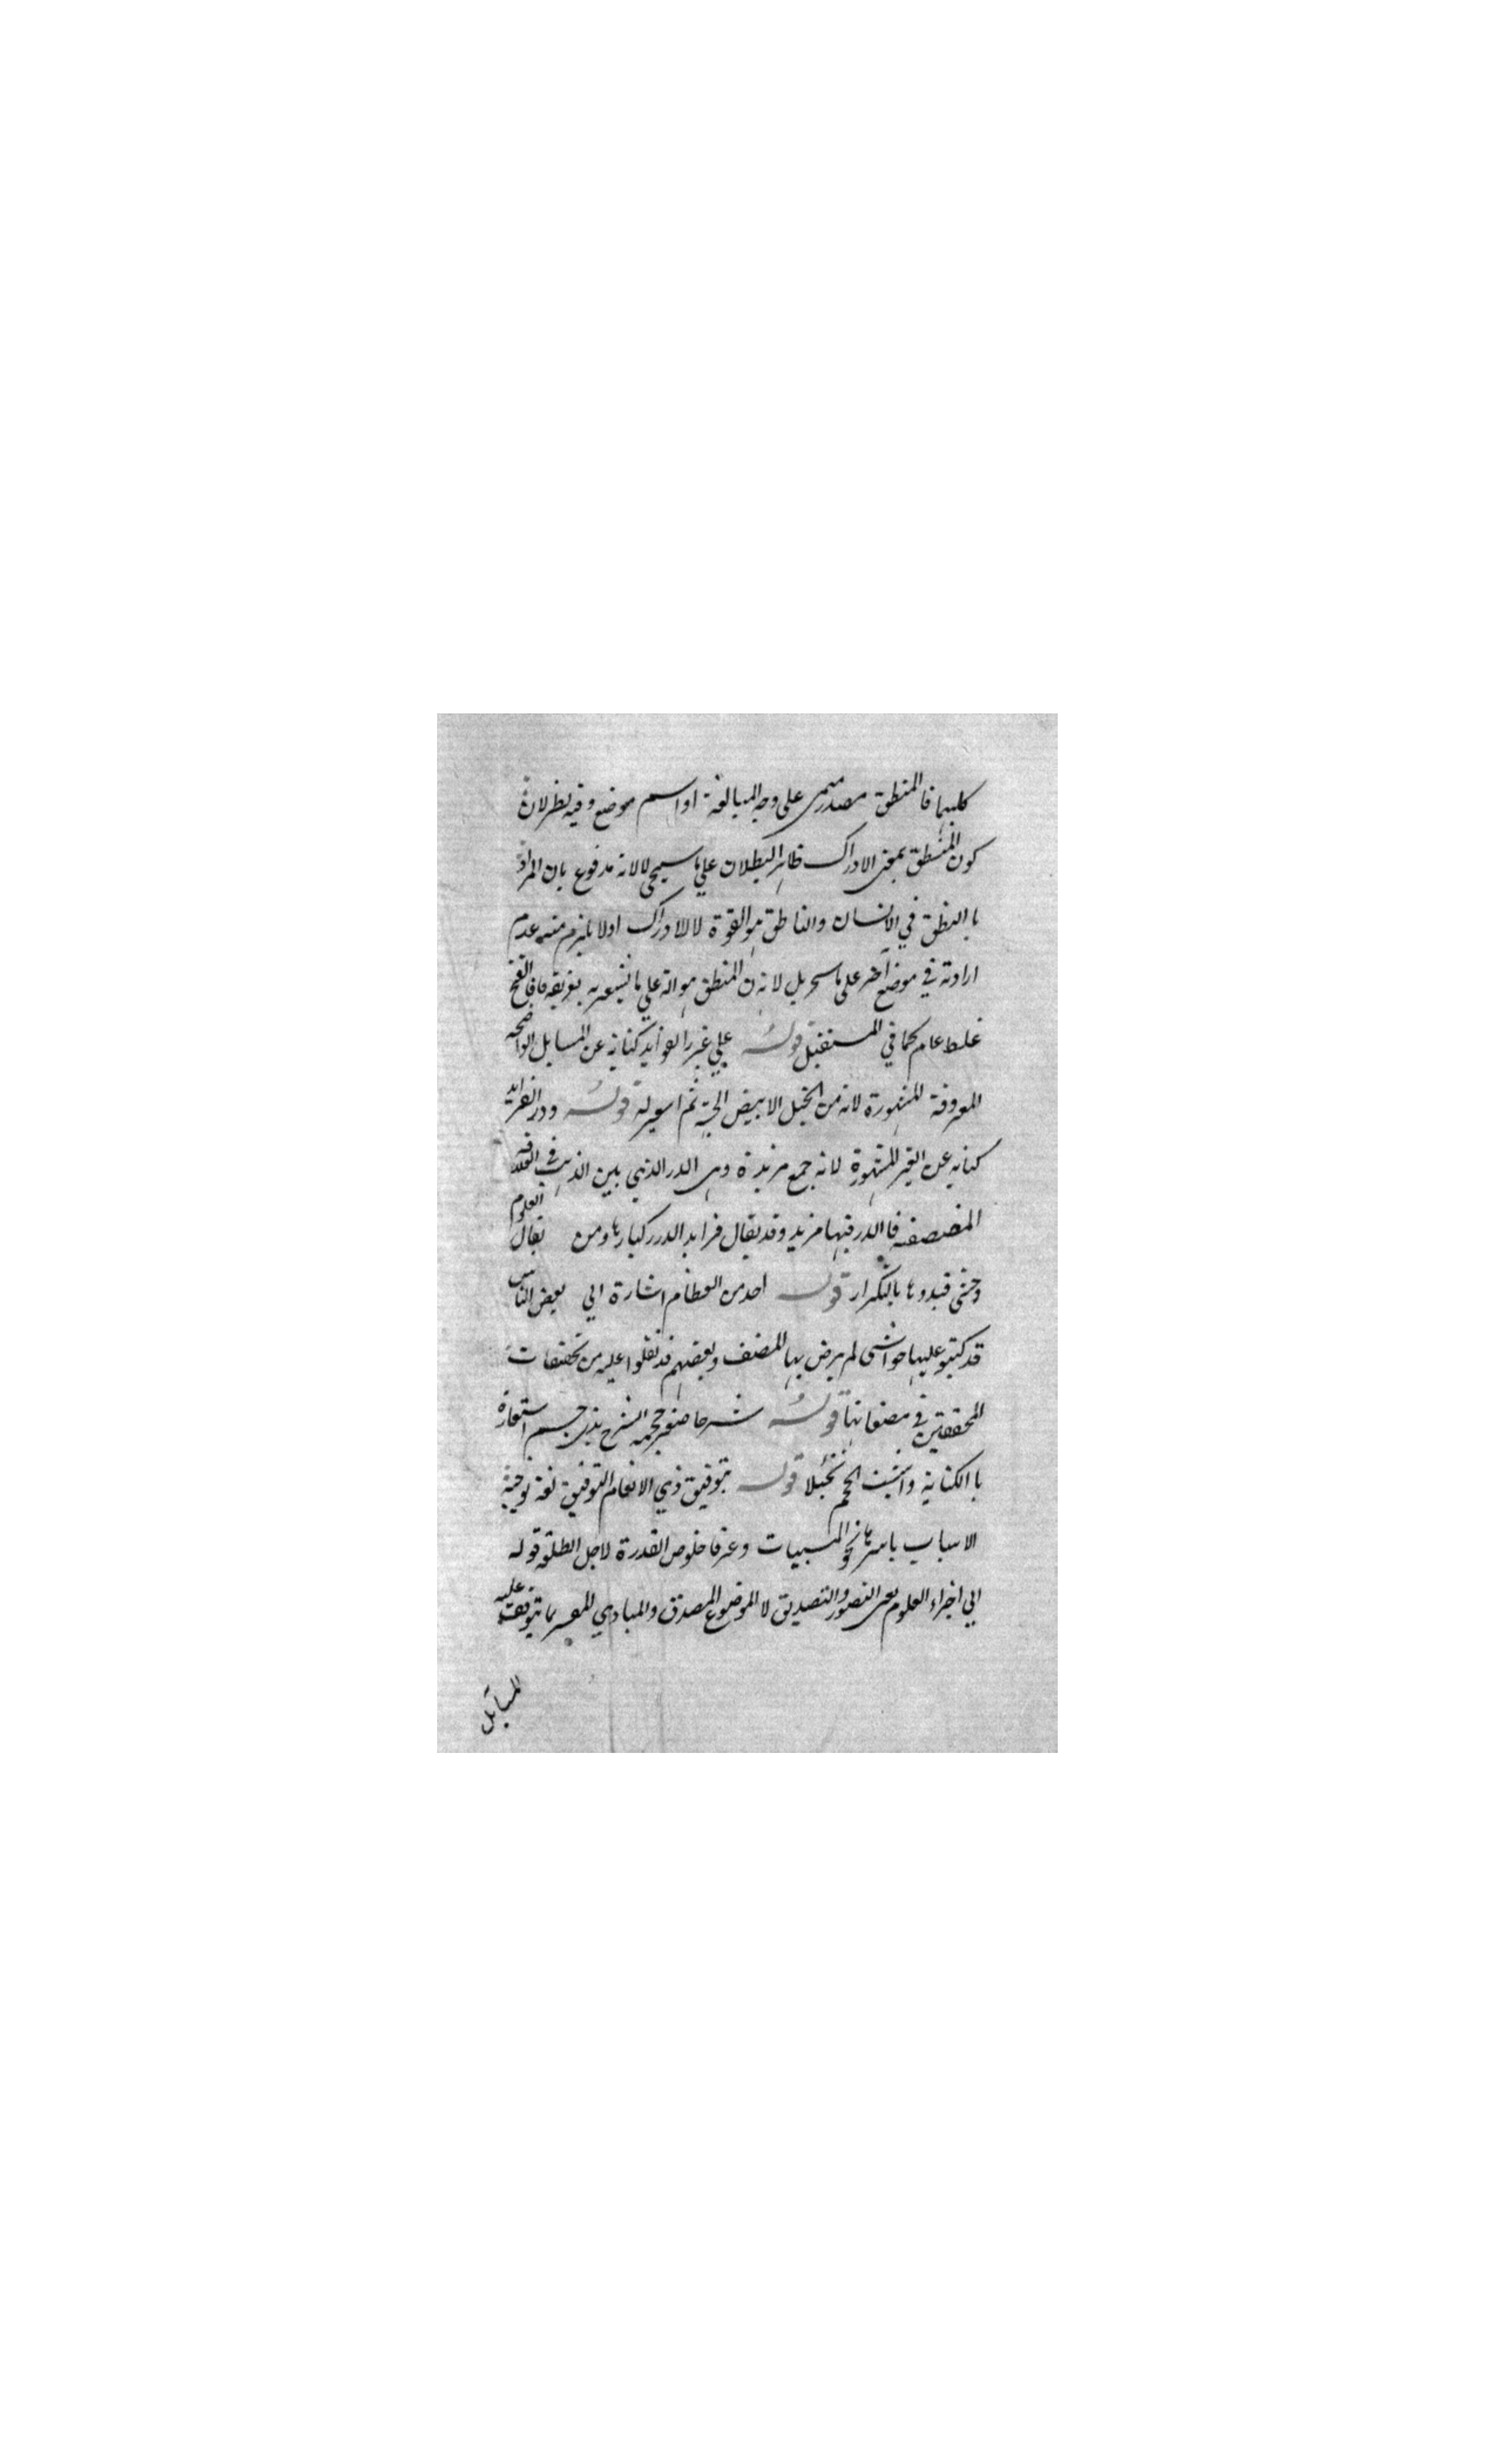 كليهما فالمنطق مصدر ميمى على وجه المبالغة او اسم موضع وفيه نظر لان
كون المنطق بمعنى الادراك ظاهر البطلان علي ما سيجى لا لانه مدفوع بان المراد
باالنطق في الانسان والناطق هو القوة لا الادراك اولا يلزم منه عدم
ارادته في موضع آخر على ما بل لان المنطق هو الة علي ما يشعر به تعريفه فاالفتح
غلط عام كما في المستقبل قوله علي غرر الفوايد كناية عن المسايل الواضحه
المعروفة المشهورة لانه من الخيل الابيض الجبهة ثم قوله ودرر الفرايد
كنايه عن الغير المشهورة لانه جمع فريدة وهى الدر الذي بين الذهب في القلادة
فاالدر فيها فريد وقد يقال فرايد الدرر كبارها ومن يقال العلوم
وحشى فقيدوها بالتكرار قوله احد من العظام اشارة الي بعض الناس
قد كتبو عليها حواشى لم يرض بها المصنف وبعضهم قد نقلوا عليه من تحقيقات
المحققين في مصنفاتها قوله شرحا صغير حجمه الشرح بذى جسم استعارة
باالكناية واثبت الحجم تخييلا قوله بتوفيق ذي الانعام التوفيق لغة توجيه
الاسباب باسرها نحو المسببات وعرفا خلوص القدرة لاجل الطلقة قوله
الي اجزاء العلوم يعنى التصور والتصديق لا الموضوع المصدق والمبادي المفسر بما يتوقف عليه
المسايل